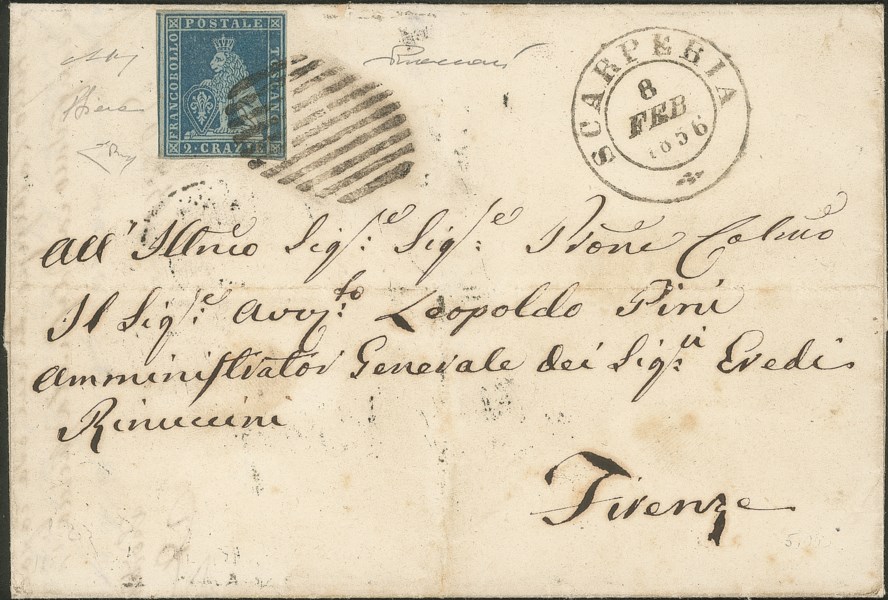 FRANCOBOLLO
POSTALE
TOSCANO
2·CRAZIE
SCARPERIA
8
FEB
1856
All' Illmo Sig.e Sig.e Prone Colmo
Il Sig.e Avv.to Leopoldo Pini
Amministrator Generale dei Sig.ri Eredi
Rinuccini
Firenze